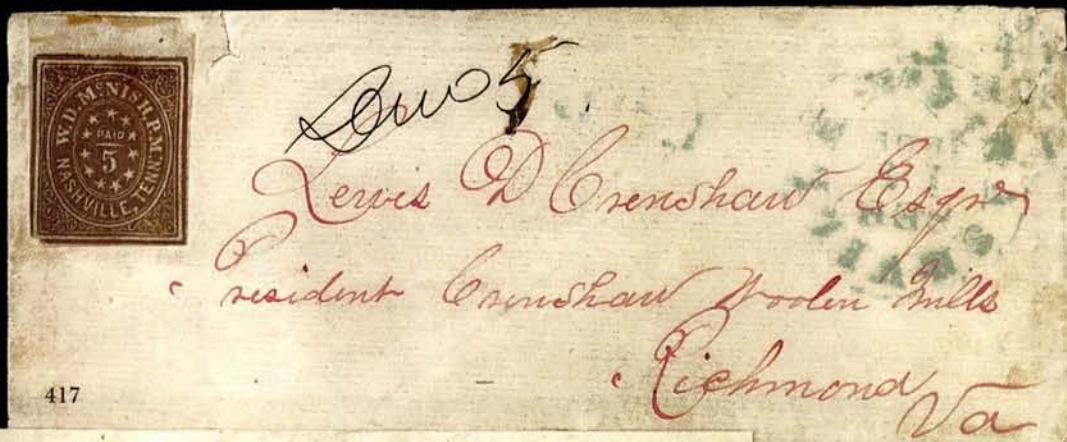 W. D. McNISH. P.M.
PAID
5
NASHVILLE, TENN.
Due 5
Lewis D Crenshaw Esqr
President Crenshaw Woolen Mills
Richmond
Va
417